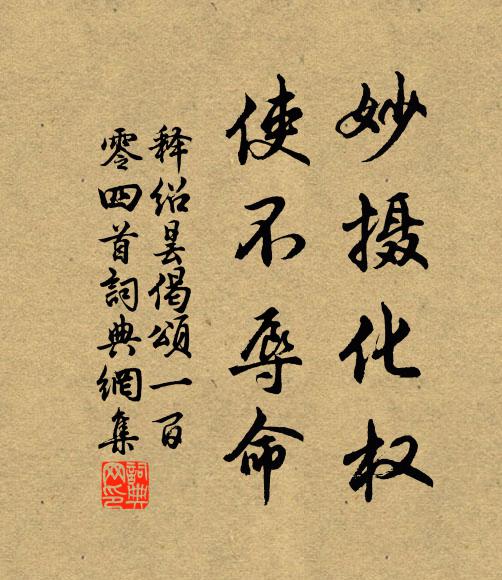 妙摄化权
使不辱命
释绍昙偈颂一百
零四首詞典網集
詞典
网印